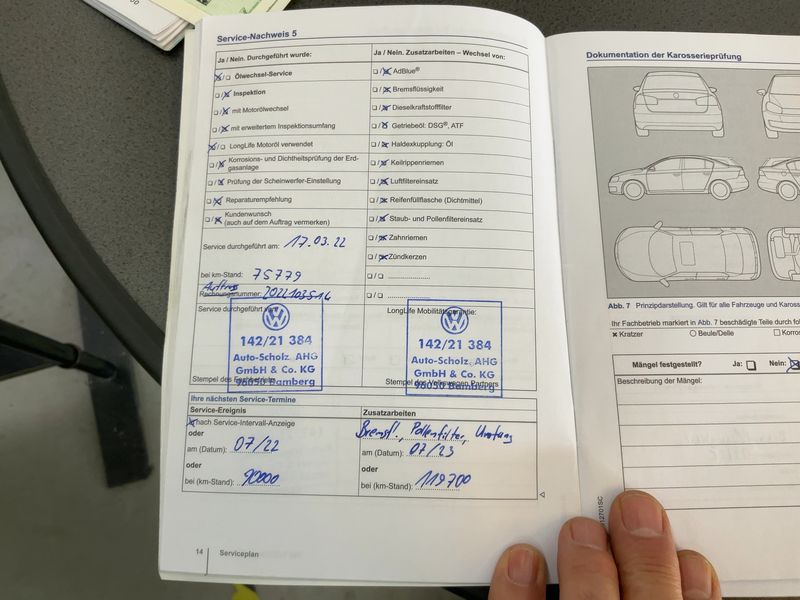 Service-Nachweis 5
Ja / Nein. Durchgeführt wurde:
Ölwechsel-Service
Inspektion
mit Motorölwechsel
mit erweitertem Inspektionsumfang
LongLife Motoröl verwendet
Korrosions- und Dichtheitsprüfung der Erd-
gasanlage
Prüfung der Scheinwerfer-Einstellung
Reparaturempfehlung
Kundenwunsch
(auch auf dem Auftrag vermerken)
Service durchgeführt am: 17.03.22
bei km-Stand: 75779
Auftrags
Rechnungsnummer: 2022103514
Service durchgeführt von:
142/21 384
Auto-Scholz AHG
GmbH & Co. KG
96050 Bamberg
Ja / Nein. Zusatzarbeiten – Wechsel von:
AdBlue®
Bremsflüssigkeit
Dieselkraftstofffilter
Getriebeöl: DSG®, ATF
Haldexkupplung: Öl
Keilrippenriemen
Luftfiltereinsatz
Reifenfüllflasche (Dichtmittel)
Staub- und Pollenfiltereinsatz
Zahnriemen
Zündkerzen
LongLife Mobilitätsgarantie:
142/21 384
Auto-Scholz AHG
GmbH & Co. KG
96050 Bamberg
Stempel des Volkswagen Partners
Ihre nächsten Service-Termine
Service-Ereignis
nach Service-Intervall-Anzeige
oder
am (Datum): 07/22
oder
bei (km-Stand): 90000
Zusatzarbeiten
Bremsfl., Pollenfilter,
am (Datum): 07/23
oder
bei (km-Stand): 119700
14 Serviceplan
Dokumentation der Karosserieprüfung
Abb. 7 Prinzipdarstellung. Gilt für alle Fahrzeuge und
Ihr Fachbetrieb markiert in Abb. 7 beschädigte Teile durch
Kratzer Beule/Delle
Mängel festgestellt? Ja: Nein:
Beschreibung der Mängel: